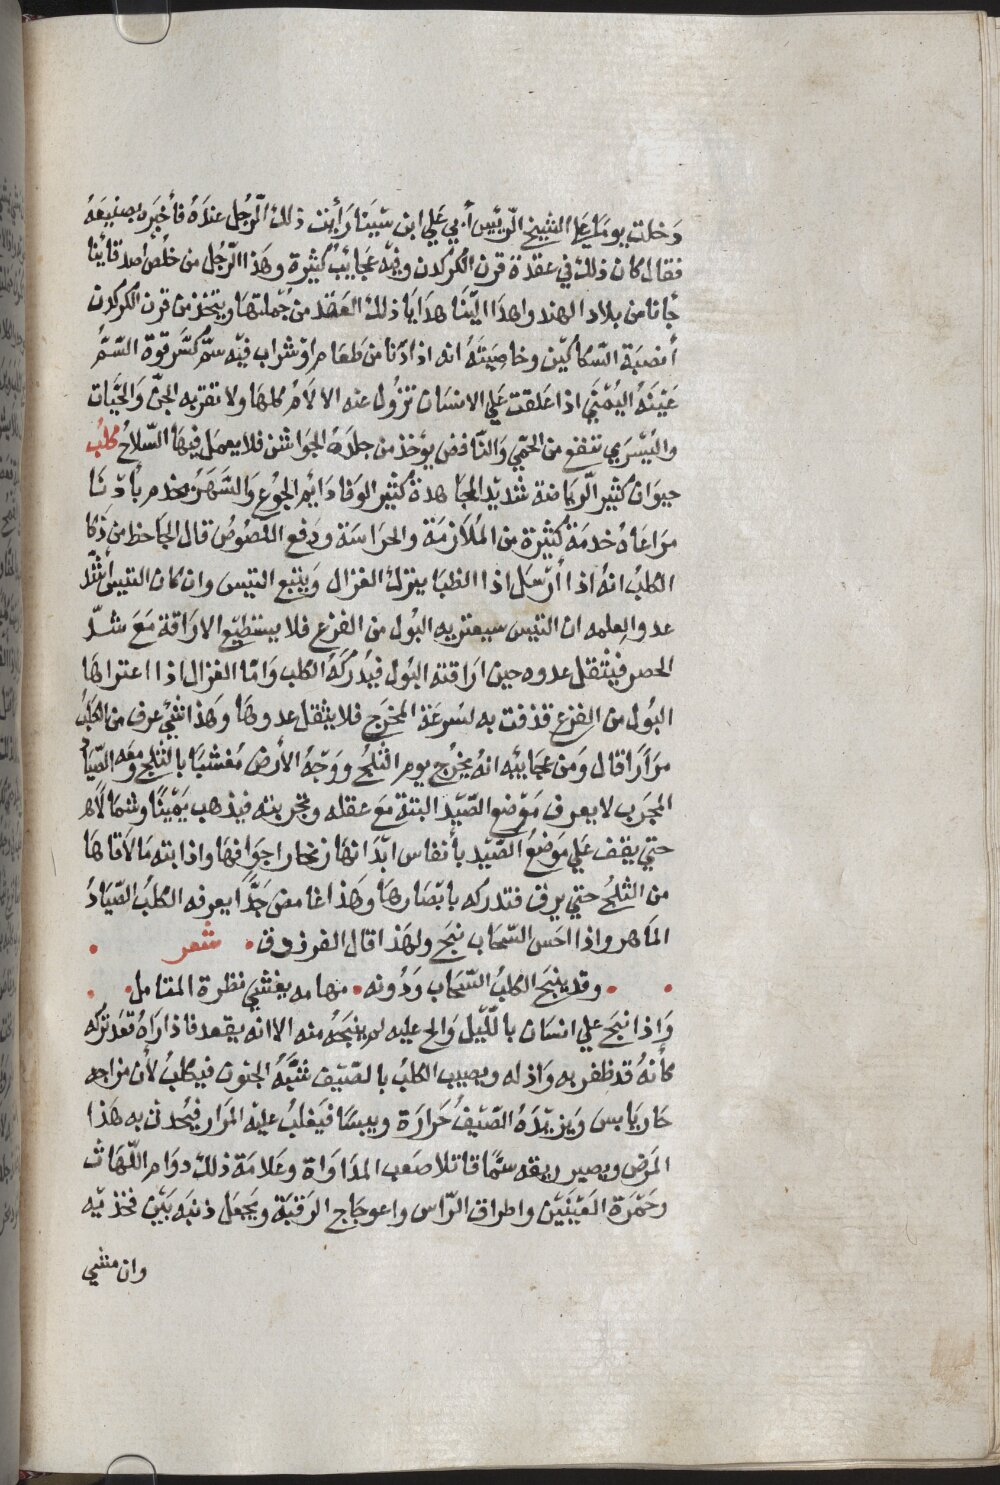 دَخلت يومًا علي الشيخ الرّئيس أبي عَلي ابن سَيَنا رَأيت ذلك الرّجُل عندَهُ فأخبَرهُ بصنيعهُ
فقال كان ذلك في عقدة قرن الكركدن وفيه عجَايبٌ كثيرة وهَذا الرّجُل من خلّص اصدقائنا
جأنا من بلاد الهند واهدَا اليّنَا هدَايَا ذلك العَقد من جُملتهَا ويتخذ من قرن الكركدن
أنصبَة السّكاكيّن وخاصيَتَهُ انه اذا دَنا من طَعَام اوْ شراب فيّه سمٌّ كسَّر قوة السّمُّ
عَيْنَهُ اليُمْنَي اذا عَلقت عَلي الانسَان تزُول عنه الالام كلهَا ولا تقرَبه الجنّ وَالحَيَات
واليُسْرَي تنفع من الحمّي وَالنّافض يؤخذ من جلدَهُ الجوَاشن فلا يعمَل فيهَا السّلاحُ كلبُ
حيوَان كثير الرّيَاضة شديّد المجَاهدةَ كثير الوَفا دَايم الجوُع وَالسَهَرَ يخدم بأدْنَا
مرَاعَاهُ خدمَة كثيرة من المُلازمَة والحرَاسَة ودَفع اللصُوصُ قال الجَاحظ من ذكَا
الكلبُ انهُ اذا أرْسَل اذا الظبَا يترك الغزال وَيتبع التيس وان كان التيس أشَدّ
عدوا لعلمه ان التيس سيعتريه البوُل من الفزع فلا يستطيّع الارَاقة مَعَ شدّ
الحصر فيَثْقل عدوه حين ارَاقته البَول فيُدْركَهُ الكلب وَامّا الغزال اذا اعتراهَا
البوُل من الفزع قذفت به لسَرعَة المخَرج فلا يثقل عدوهَا وَهَذا شيْ عرف من الكلبُ
مرَارًا قال وَمن عجَايبه انهُ يخرُج يوم الثّلجُ وَوَجْهُ الأرضُ مُغشيَا بالثّلج ومعَه الصّيَاد
المجرَب لا يعرف مَوْضع الصّيّد البتة مَعَ عقله وتجربته فيذهب يَمّينًا وشمَالاً
حتي يقف عَلي مَوضعُ الصّيّد بأنفاس ابدَانهَا زنحَار اجوَافهَا واذابته مَا لاقاهَا
من الثلجُ حتي يرق فتدركه بابّصَارهَا وهَذا غامض جَدًّا يعرفه الكلبُ الصّيَادُ
المَاهر واذا احَس السّحَاب نبَح ولهَذا قال الفرزدق • شعر •
• وقد ينبَح الكلبُ السّحَاب وَدُونه • مهَامه يغشي نظرة المتامل •
وَاذا نبَح علي انسَان باللّيل وَالح عليه لم ينجَهُ منه الا انهُ يقعد فاذا رَاهُ قعَد تركه
كأنهُ قد ظفر به وَاذله ويصيب الكلبُ بالصّيَف شبَهُ الجنون فيكلبُ لأن مزاجه
حَار يَابس وَيَزيدَهُ الصّيَفُ حَرارَة ويبسَا فيَغلبُ عليه المرَار فيَحدث به هَذا
المرَض ويصير ريقه سمًّا قاتلا صَعب المدَاوَاة وعَلامَة ذلك دوَام اللّهَاث
وَحُمْرَة العَيْنيَن واطراق الرّاس واعوجَاج الرَقبَة وَيَجعَل ذنبَه بَيْن فخذيّه
وان مشي